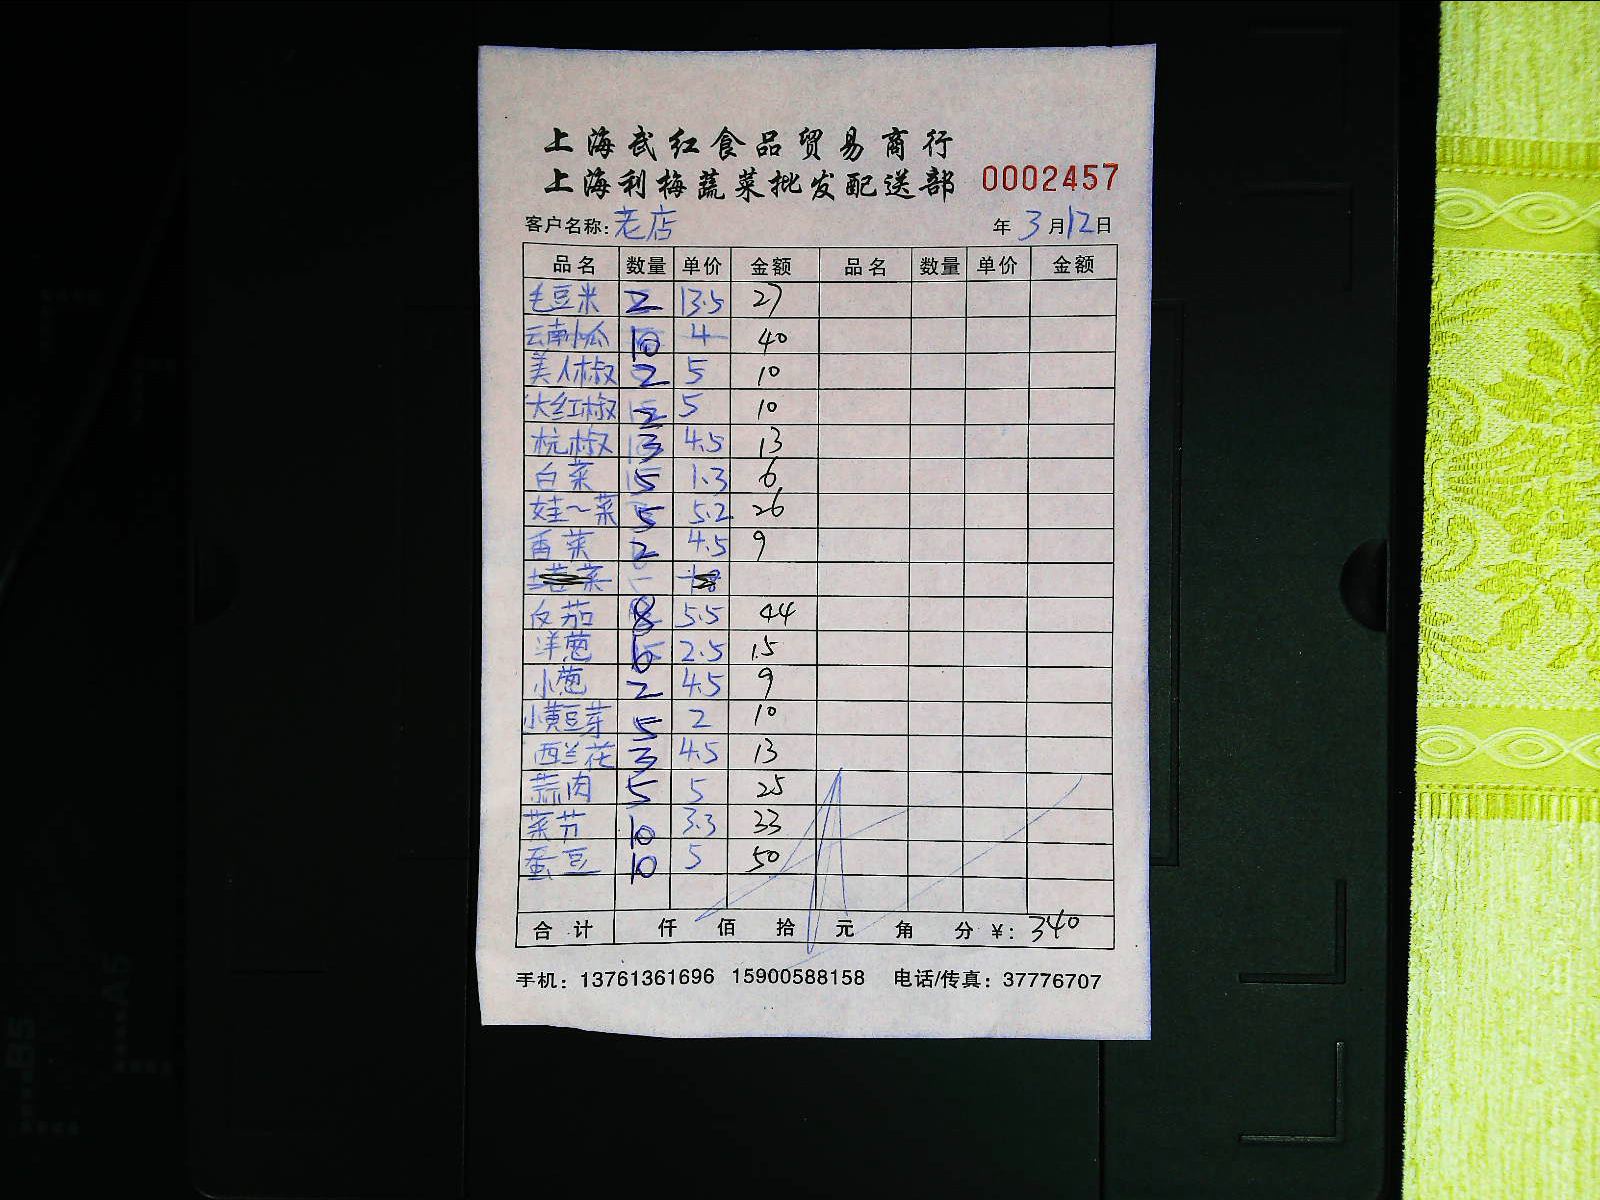 上海武红食品贸易商行
上海利梅蔬菜批发配送部 0002457
客户名称: 老店 年 3 月 12 日
品名 数量 单价 金额 品名 数量 单价 金额
毛豆米 2 13.5 27
云南小瓜 10 4 40
美人椒 2 5 10
大红椒 2 5 10
杭椒 3 4.5 13
白菜 5 1.3 6
娃~菜 5 5.2 26
香菜 2 4.5 9
菜
茄 8 5.5 44
洋葱 6 2.5 15
小葱 2 4.5 9
小黄豆芽 5 2 10
西兰花 3 4.5 13
蒜肉 5 5 25
菜节 10 3.3 33
蚕豆 10 5 50
合计 仟 佰 拾 元 角 分 ¥: 340
手机: 13761361696 15900588158 电话/传真: 37776707
B5
A5